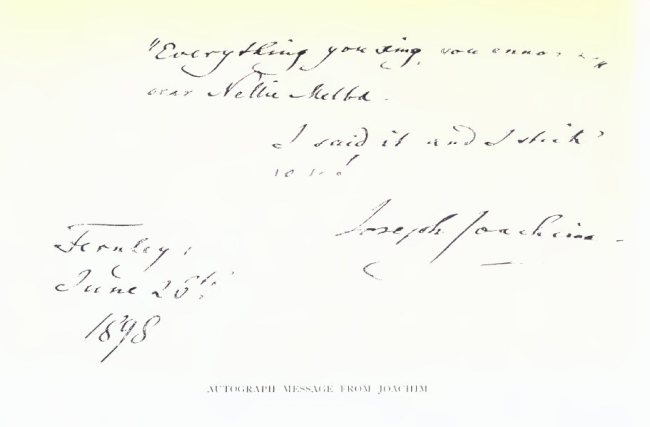 "Everything you sing, you
dear Nellie Melba.
I said it and I stick
to it!
Joseph Joachim.
Fernley,
June 25th
1898
AUTOGRAPH MESSAGE FROM JOACHIM